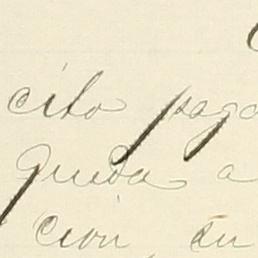 cito paga
quida a
cion, en